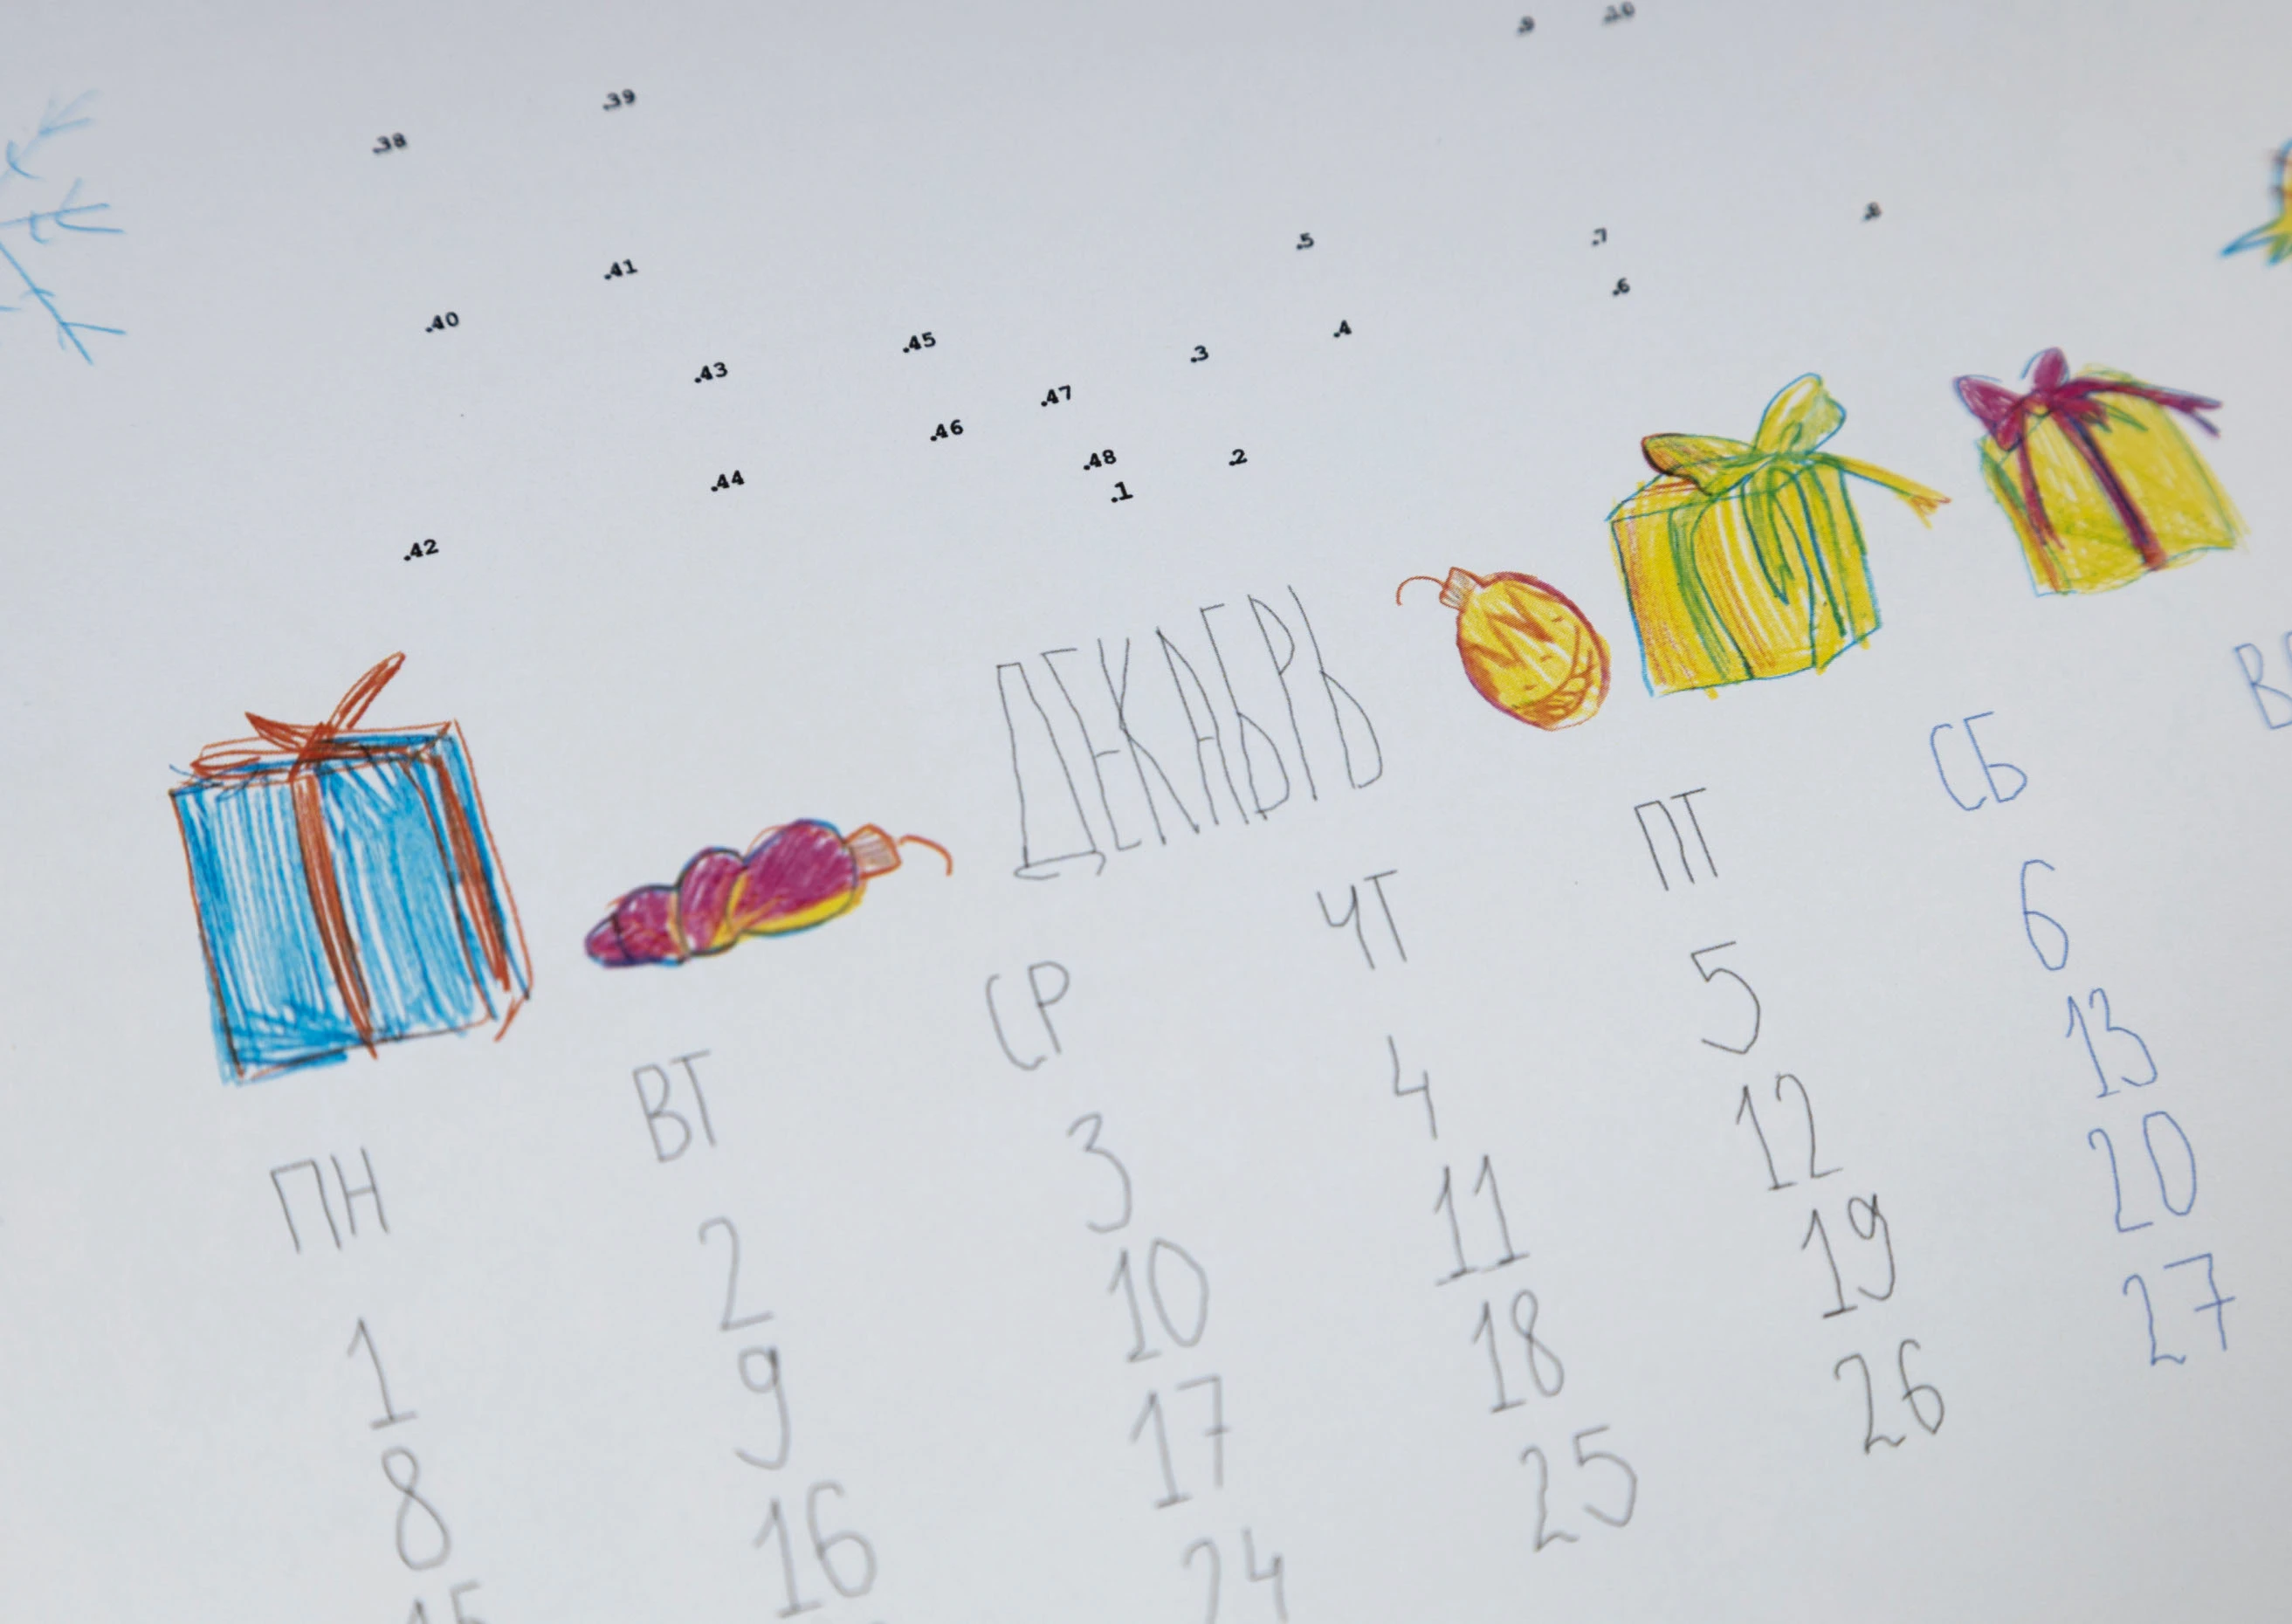 .9 .10
.38 .39
.5 .7 .8
.40 .41 .6
.43 .45 .3 .4
.46 .47
.42 .44 .48 .2
.1
ДЕКАБРЬ
ПН ВТ СР ЧТ ПТ СБ
1 2 3 4 5 6
8 9 10 11 12 13
15 16 17 18 19 20
24 25 26 27